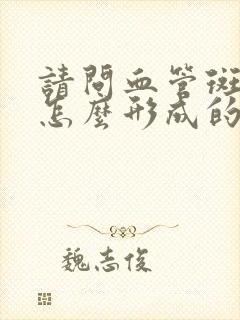 請問血管斑
怎麼形成的
魏志俊